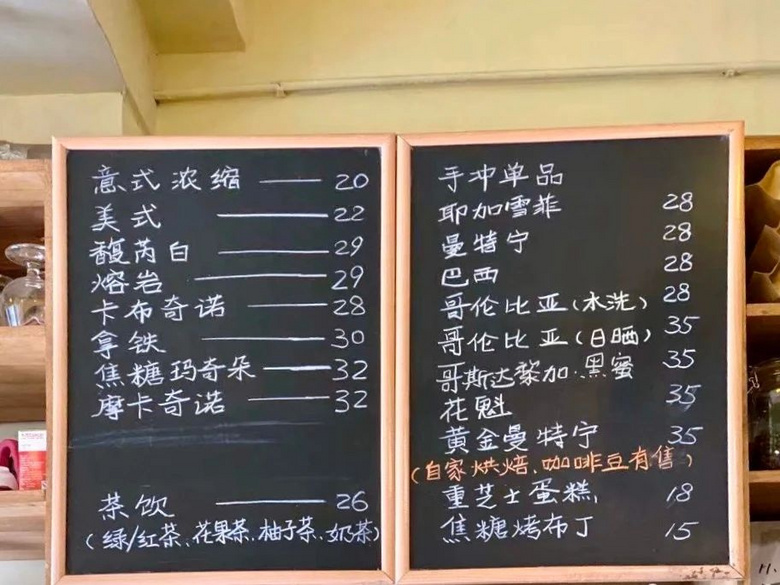 意式浓缩 —— 20
美式 —— 22
馥芮白 —— 29
熔岩 —— 29
卡布奇诺 —— 28
拿铁 —— 30
焦糖玛奇朵 —— 32
摩卡奇诺 —— 32
茶饮 —— 26
(绿/红茶、花果茶、柚子茶、奶茶)
手冲单品
耶加雪菲 28
曼特宁 28
巴西 28
哥伦比亚(水洗) 28
哥伦比亚(日晒) 35
哥斯达黎加·黑蜜 35
花魁 35
黄金曼特宁 35
(自家烘焙、咖啡豆有售)
重芝士蛋糕 18
焦糖烤布丁 15